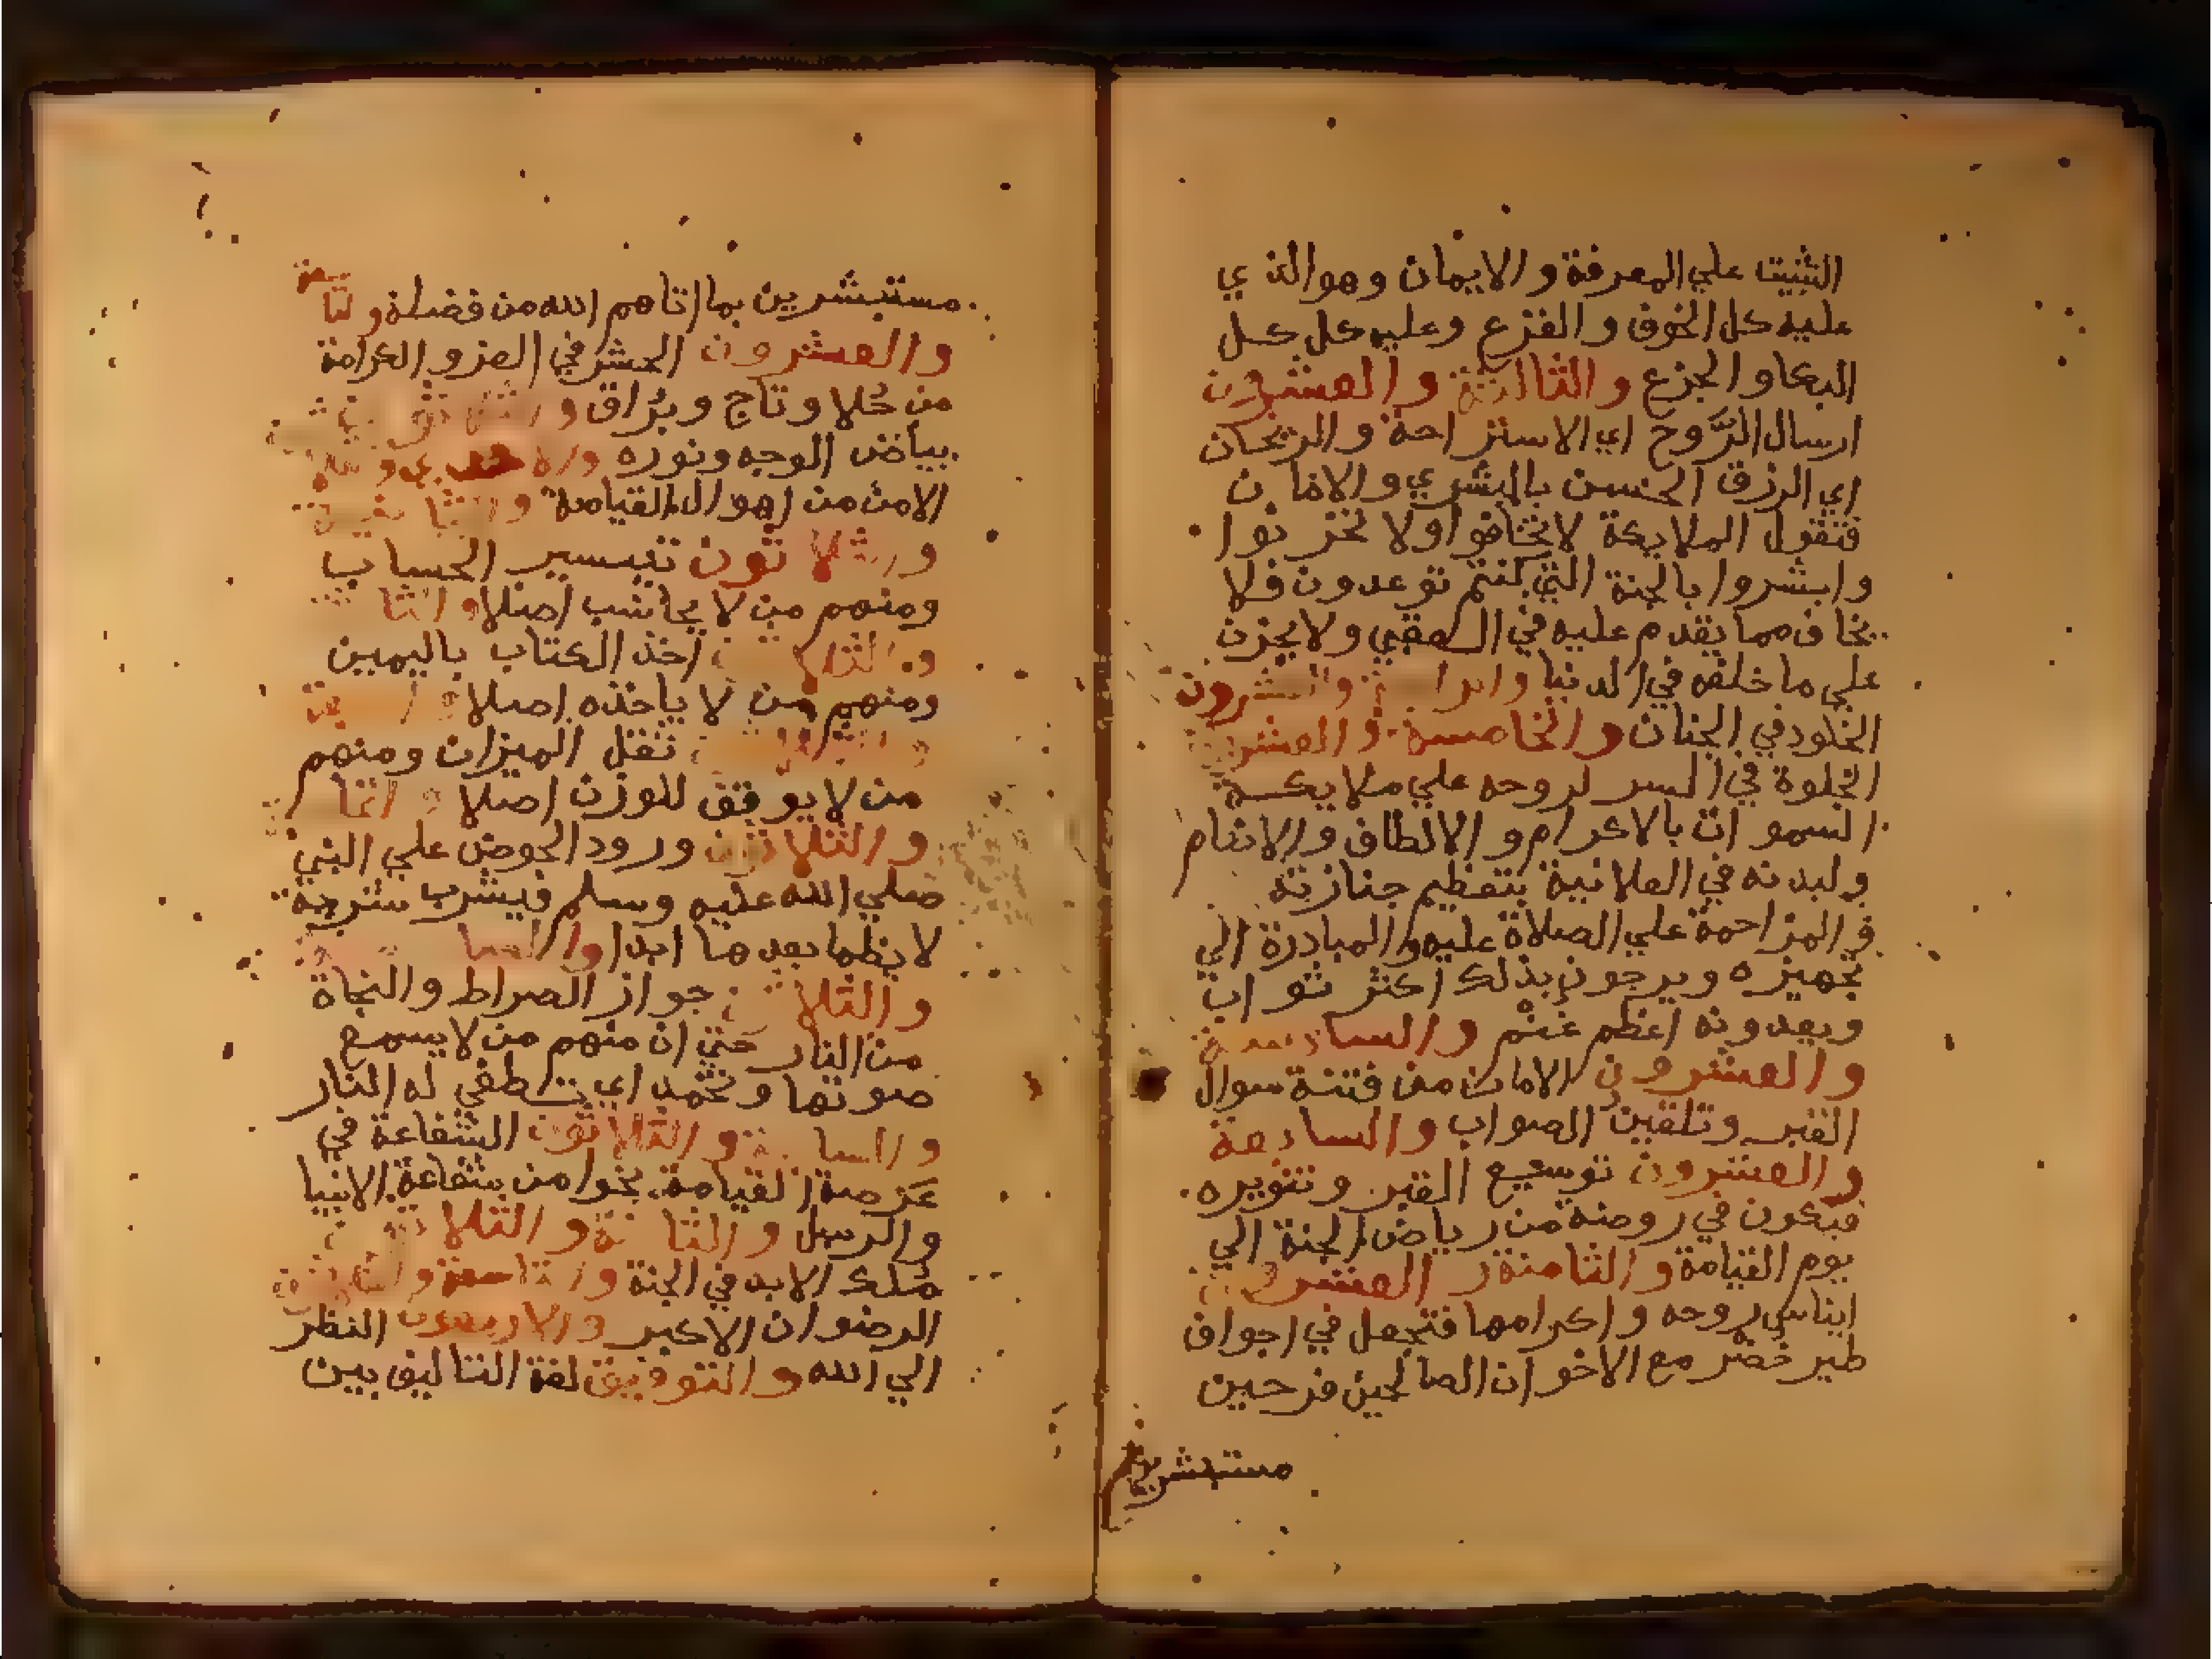 التثبيت علي المعرفة والايمان وهو الذي
عليه كل الخوف والفزع وعليه كل كل
البكا والجزع والثالثة والعشرون
ارسال الرَّوح اي الاستراحة والريحان
اي الرزق الحسن بالبشري والامان
فتقول الملايكة لا تخافوا ولا تحزنوا
وابشروا بالجنة التي كنتم توعدون فلا
يخاف مما يقدم عليه في العقبي ولا يحزن
علي ما خلفه في الدنيا والرابعة والعشرون
الخلود في الجنان والخامسة والعشرون
الخلوة في السر لروحه علي ملايكة
السموات بالاكرام والالطاف والانعام
ولبدنه في العلانية بتعظيم جنازته
والمزاحمة علي الصلاة عليه والمبادرة الي
تجهيزه ويرجون بذلك اكثر ثواب
ويعدونه اعظم غنم والسادسة
والعشرون الامان من فتنة سوال
القبر وتلقين الصواب والسابعة
والعشرون توسيع القبر وتنويره
فيكون في روضة من رياض الجنة الي
يوم القيامة والثامنة والعشرون
ايناس روحه واكرامها فتجعل في اجواف
طير خضر مع الاخوان الصالحين فرحين
مستبشرين
مستبشرين بما اتاهم الله من فضله والتاسعة
والعشرون الحشر في العز والكرامة
من حُلا وتاج وبُراق والثلاثون
بياض الوجه ونوره
الامن من اهوال القيامة والثانية
والثلاثون تيسير الحساب
ومنهم من لا يحاسب اصلا والثالثة
والثلاثون اخذ الكتاب باليمين
ومنهم من لا ياخذه اصلا والرابعة
والثلاثون ثقل الميزان ومنهم
من لا يوقف للوزن اصلا
والثلاثون ورود الحوض علي النبي
صلي الله عليه وسلم فيشرب شربة
لا يظما بعدها ابدا والسادسة
والثلاثون جواز الصراط والنجاة
من النار حتي ان منهم من لا يسمع
صوتها وتخمد اي تطفي له النار
والسابعة والثلاثون الشفاعة في
عَرصة القيامة نحوا من شفاعة الانبيا
والرسل والثامنة والثلاثون
مُلك الابد في الجنة والتاسعة والثلاثون
الرضوان الاكبر والاربعون النظر
الي الله والتوفيق لغة التاليف بين